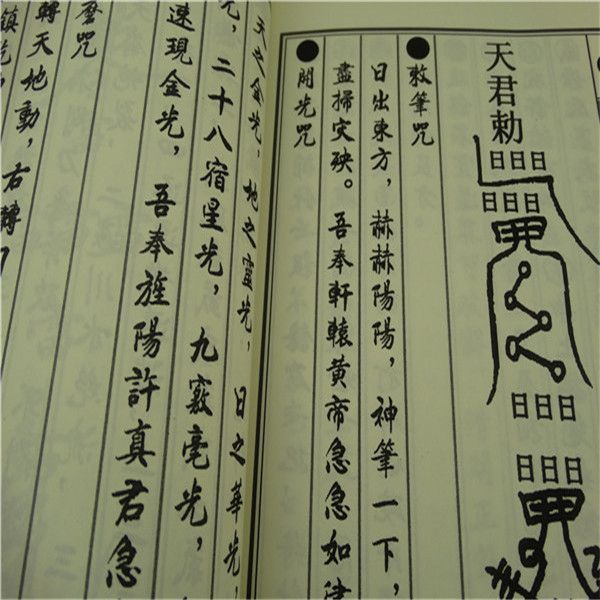 天君勅
日日日
日日日
日日日
日日日
●敕筆咒
日出東方，赫赫陽陽，神筆一下，
盡掃灾殃。吾奉軒轅黄帝急急如律
●開光咒
天之金光，地之靈光，日之華光，
光，二十八宿星光，九竅毫光，
速現金光，吾奉旌陽許真君急
咒
轉天地動，右轉
鎮